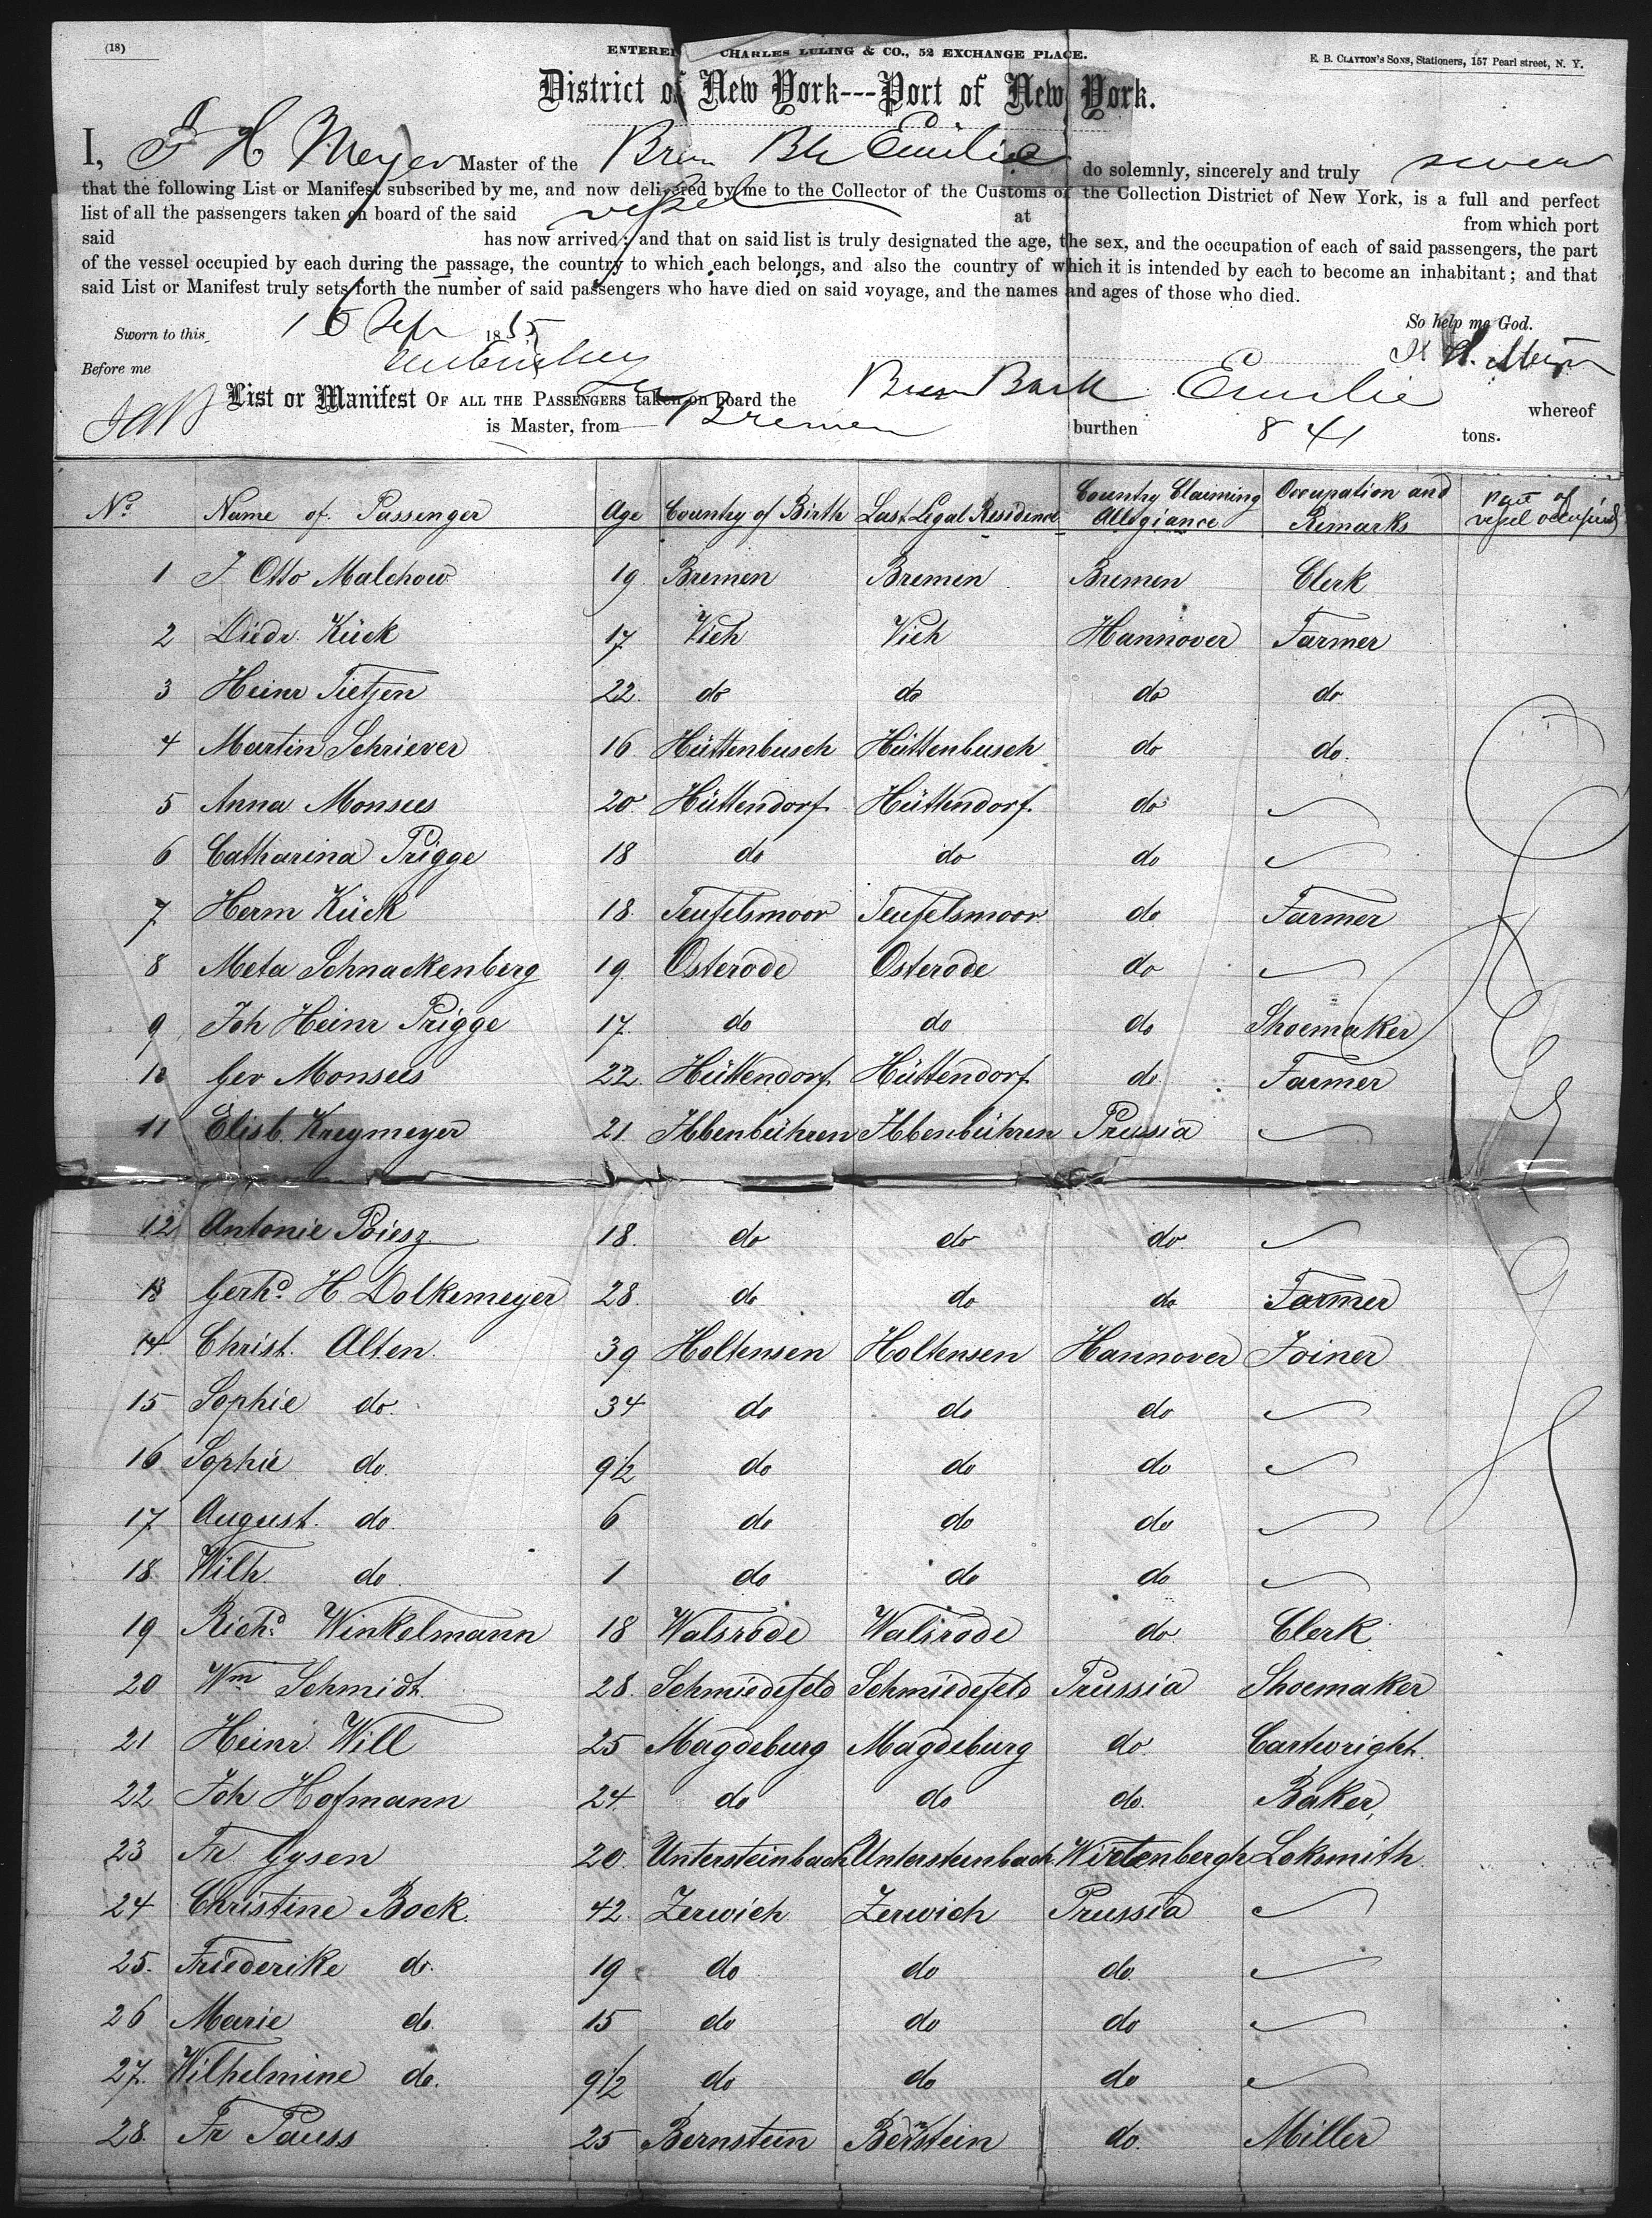 (18)
ENTERED CHARLES LULING & CO., 52 EXCHANGE PLACE.
E. B. CLAYTON'S SONS, Stationers, 157 Pearl street, N. Y.
District of New York---Port of New York.
I, H Meyer Master of the Brem Bk Emilie do solemnly, sincerely and truly swear
that the following List or Manifest subscribed by me, and now delivered by me to the Collector of the Customs of the Collection District of New York, is a full and perfect
list of all the passengers taken on board of the said vessel at from which port
said has now arrived; and that on said list is truly designated the age, the sex, and the occupation of each of said passengers, the part
of the vessel occupied by each during the passage, the country to which each belongs, and also the country of which it is intended by each to become an inhabitant; and that
said List or Manifest truly sets forth the number of said passengers who have died on said voyage, and the names and ages of those who died.
So help me God.
Sworn to this 16 Sep 18
H. Meyer
Before me
List or Manifest OF ALL THE PASSENGERS taken on board the Brem Bark Emilie whereof
is Master, from Bremen burthen 841 tons.
No. Name of Passenger Age Country of Birth Last Legal Residence Country Claiming Allegiance Occupation and Remarks Part of vessel occupied
1 J Otto Malchow 19 Bremen Bremen Bremen Clerk
2 Diedr. Kück 17 Vieh Vieh Hannover Farmer
3 Heinr Tietjen 22. do do do do
4 Martin Schriever 16 Hüttenbusch Hüttenbusch do do.
5 Anna Monsees 20 Hüttendorf Hüttendorf do
6 Catharina Prigge 18 do do do
7 Herm Kück 18. Teufelsmoor Teufelsmoor do Farmer
8 Meta Schnackenberg 19 Osterode Osterode do
9 Joh Heinr Prigge 17. do do do Shoemaker
10 Gev Monsees 22 Hüttendorf Hüttendorf do Farmer
11 Elisb. Kreymeyer 21 Ibbenbühren Ibbenbühren Prussia
12 Antonie 18. do do do
13 Gerhd. H. Dolkemeyer 28. do do do Farmer
14 Christ. Alten 39 Holtensen Holtensen Hannover Joiner
15 Sophie do. 34 do do do
16 Sophie do. 9 1/2 do do do
17 August. do. 6 do do do
18. Wilh. do. 1 do do do
19 Richd. Winkelmann 18 Walsrode Walsrode do Clerk
20 Wm Schmidt 28. Schmiedefeld Schmiedefeld Prussia Shoemaker
21 Heinr. Will 25 Magdeburg Magdeburg do. Cartwright.
22 Joh Hofmann 24. do do do. Baker,
23 Fr Gysen 20. Untersteinbach Untersteinbach Wirtenbergh Loksmith
24 Christine Bock 42. Zerwich Zerwich Prussia
25. Friederike do. 19 do do do.
26 Marie do. 15 do do do
27. Wilhelmine do. 9 1/2 do do do
28. Fr Pauss 25 Bernstein Berstein do. Miller